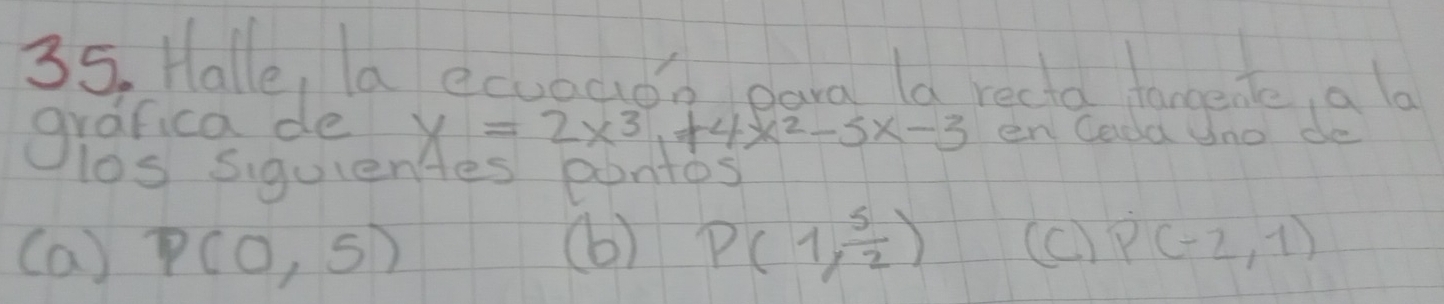 35. Halle, la ecuación para la recta tangente, a la
gráfica de y = 2x³ + 4x² - 5x - 3 en cada uno de
los siguientes puntos
(a) P(0, 5) (b) P(1, 5/2) (c) P(-2, 1)